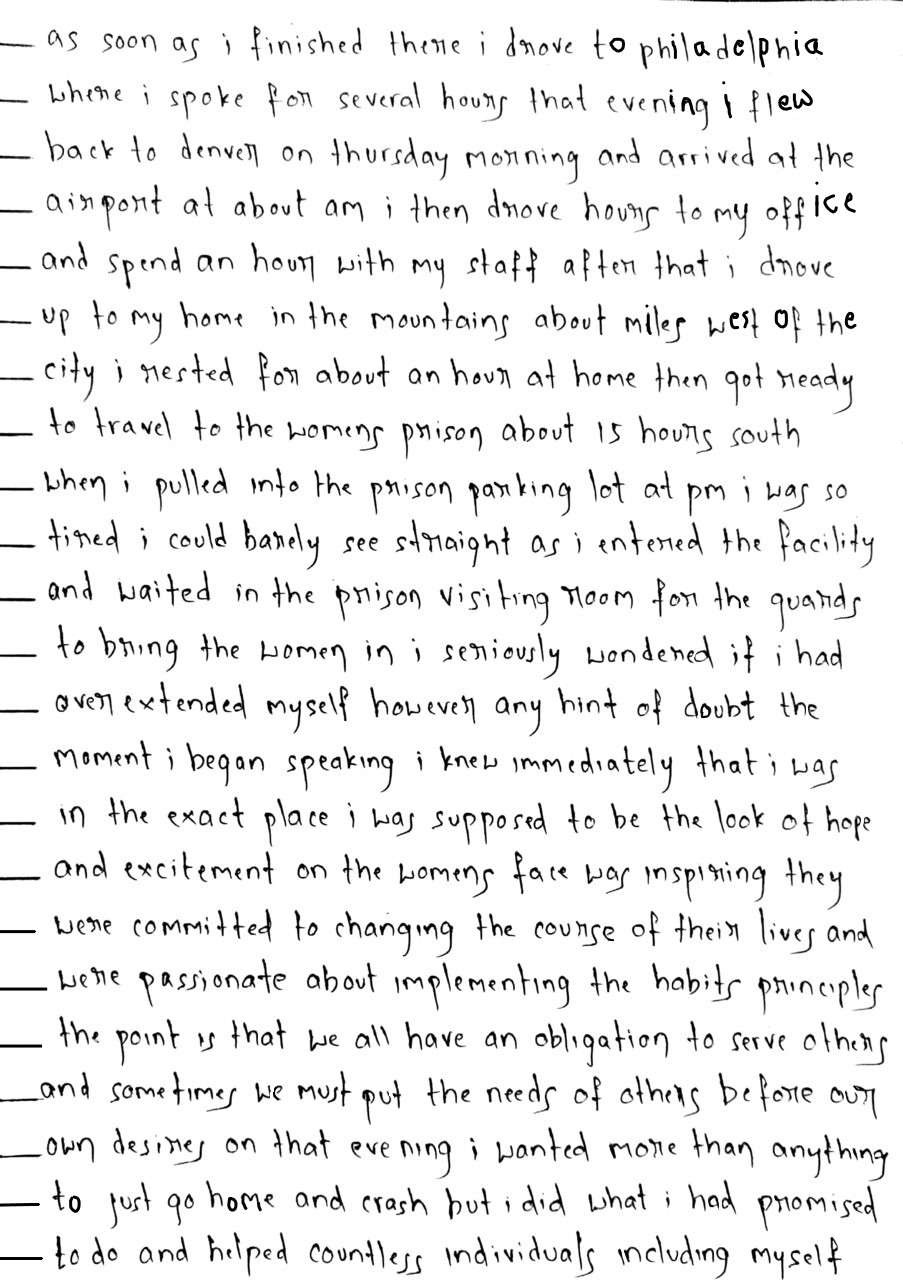 as soon as i finished there i drove to philadelphia
where i spoke for several hours that evening i flew
back to denver on thursday morning and arrived at the
airport at about am i then drove hours to my office
and spend an hour with my staff after that i drove
up to my home in the mountains about miles west of the
city i rested for about an hour at home then got ready
to travel to the womens prison about 15 hours south
when i pulled into the prison parking lot at pm i was so
tired i could barely see straight as i entered the facility
and waited in the prison visiting room for the guards
to bring the women in i seriously wondered if i had
over extended myself however any hint of doubt the
moment i began speaking i knew immediately that i was
in the exact place i was supposed to be the look of hope
and excitement on the womens face was inspiring they
were committed to changing the course of their lives and
were passionate about implementing the habits principles
the point is that we all have an obligation to serve others
and sometimes we must put the needs of others before our
own desires on that evening i wanted more than anything
to just go home and crash but i did what i had promised
to do and helped countless individuals including myself